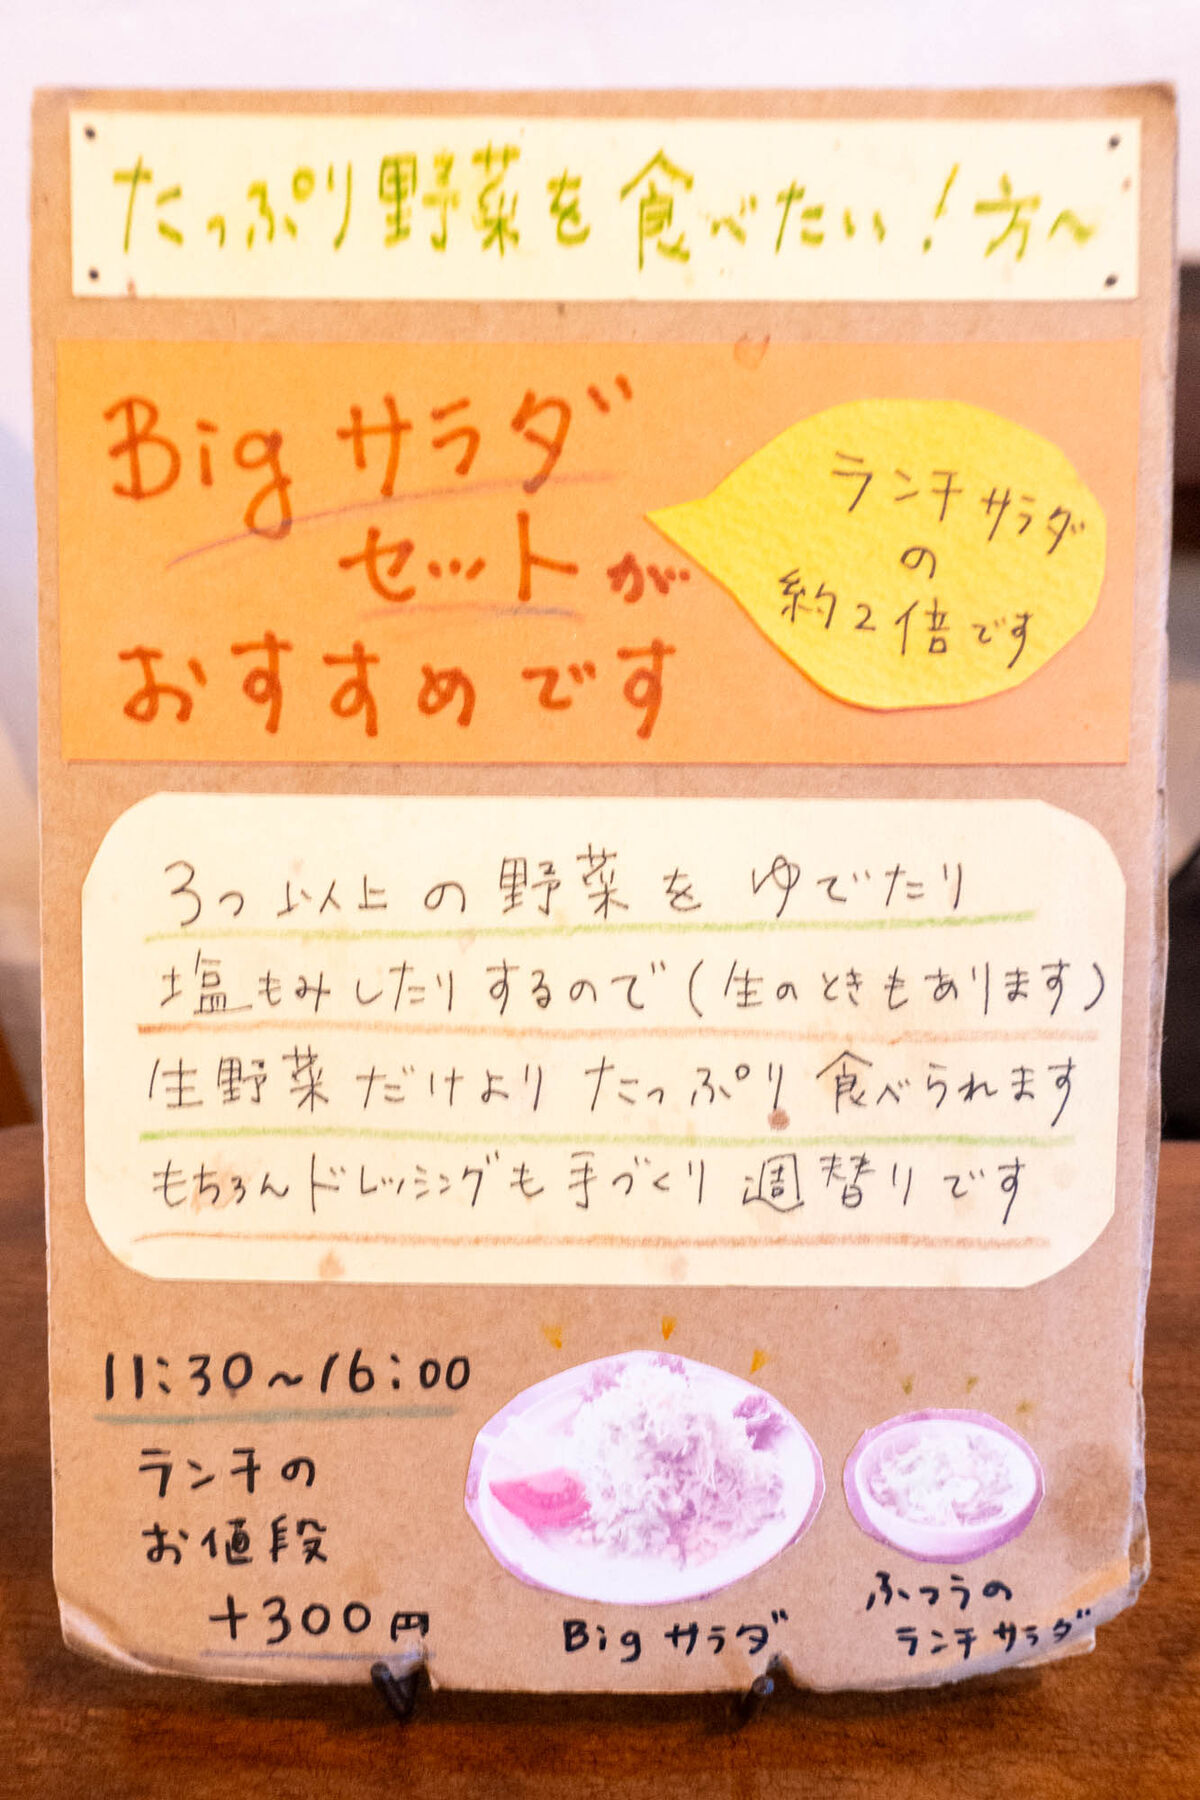 たっぷり野菜を食べたい！方へ
Big サラダ
セットが
おすすめです
ランチサラダ
の
約2倍です
3つ以上の野菜をゆでたり
塩もみしたりするので(生のときもあります)
生野菜だけよりたっぷり食べられます
もちろんドレッシングも手づくり週替りです
11:30～16:00
ランチの
お値段
+300円
Big サラダ
ふつうの
ランチサラダ